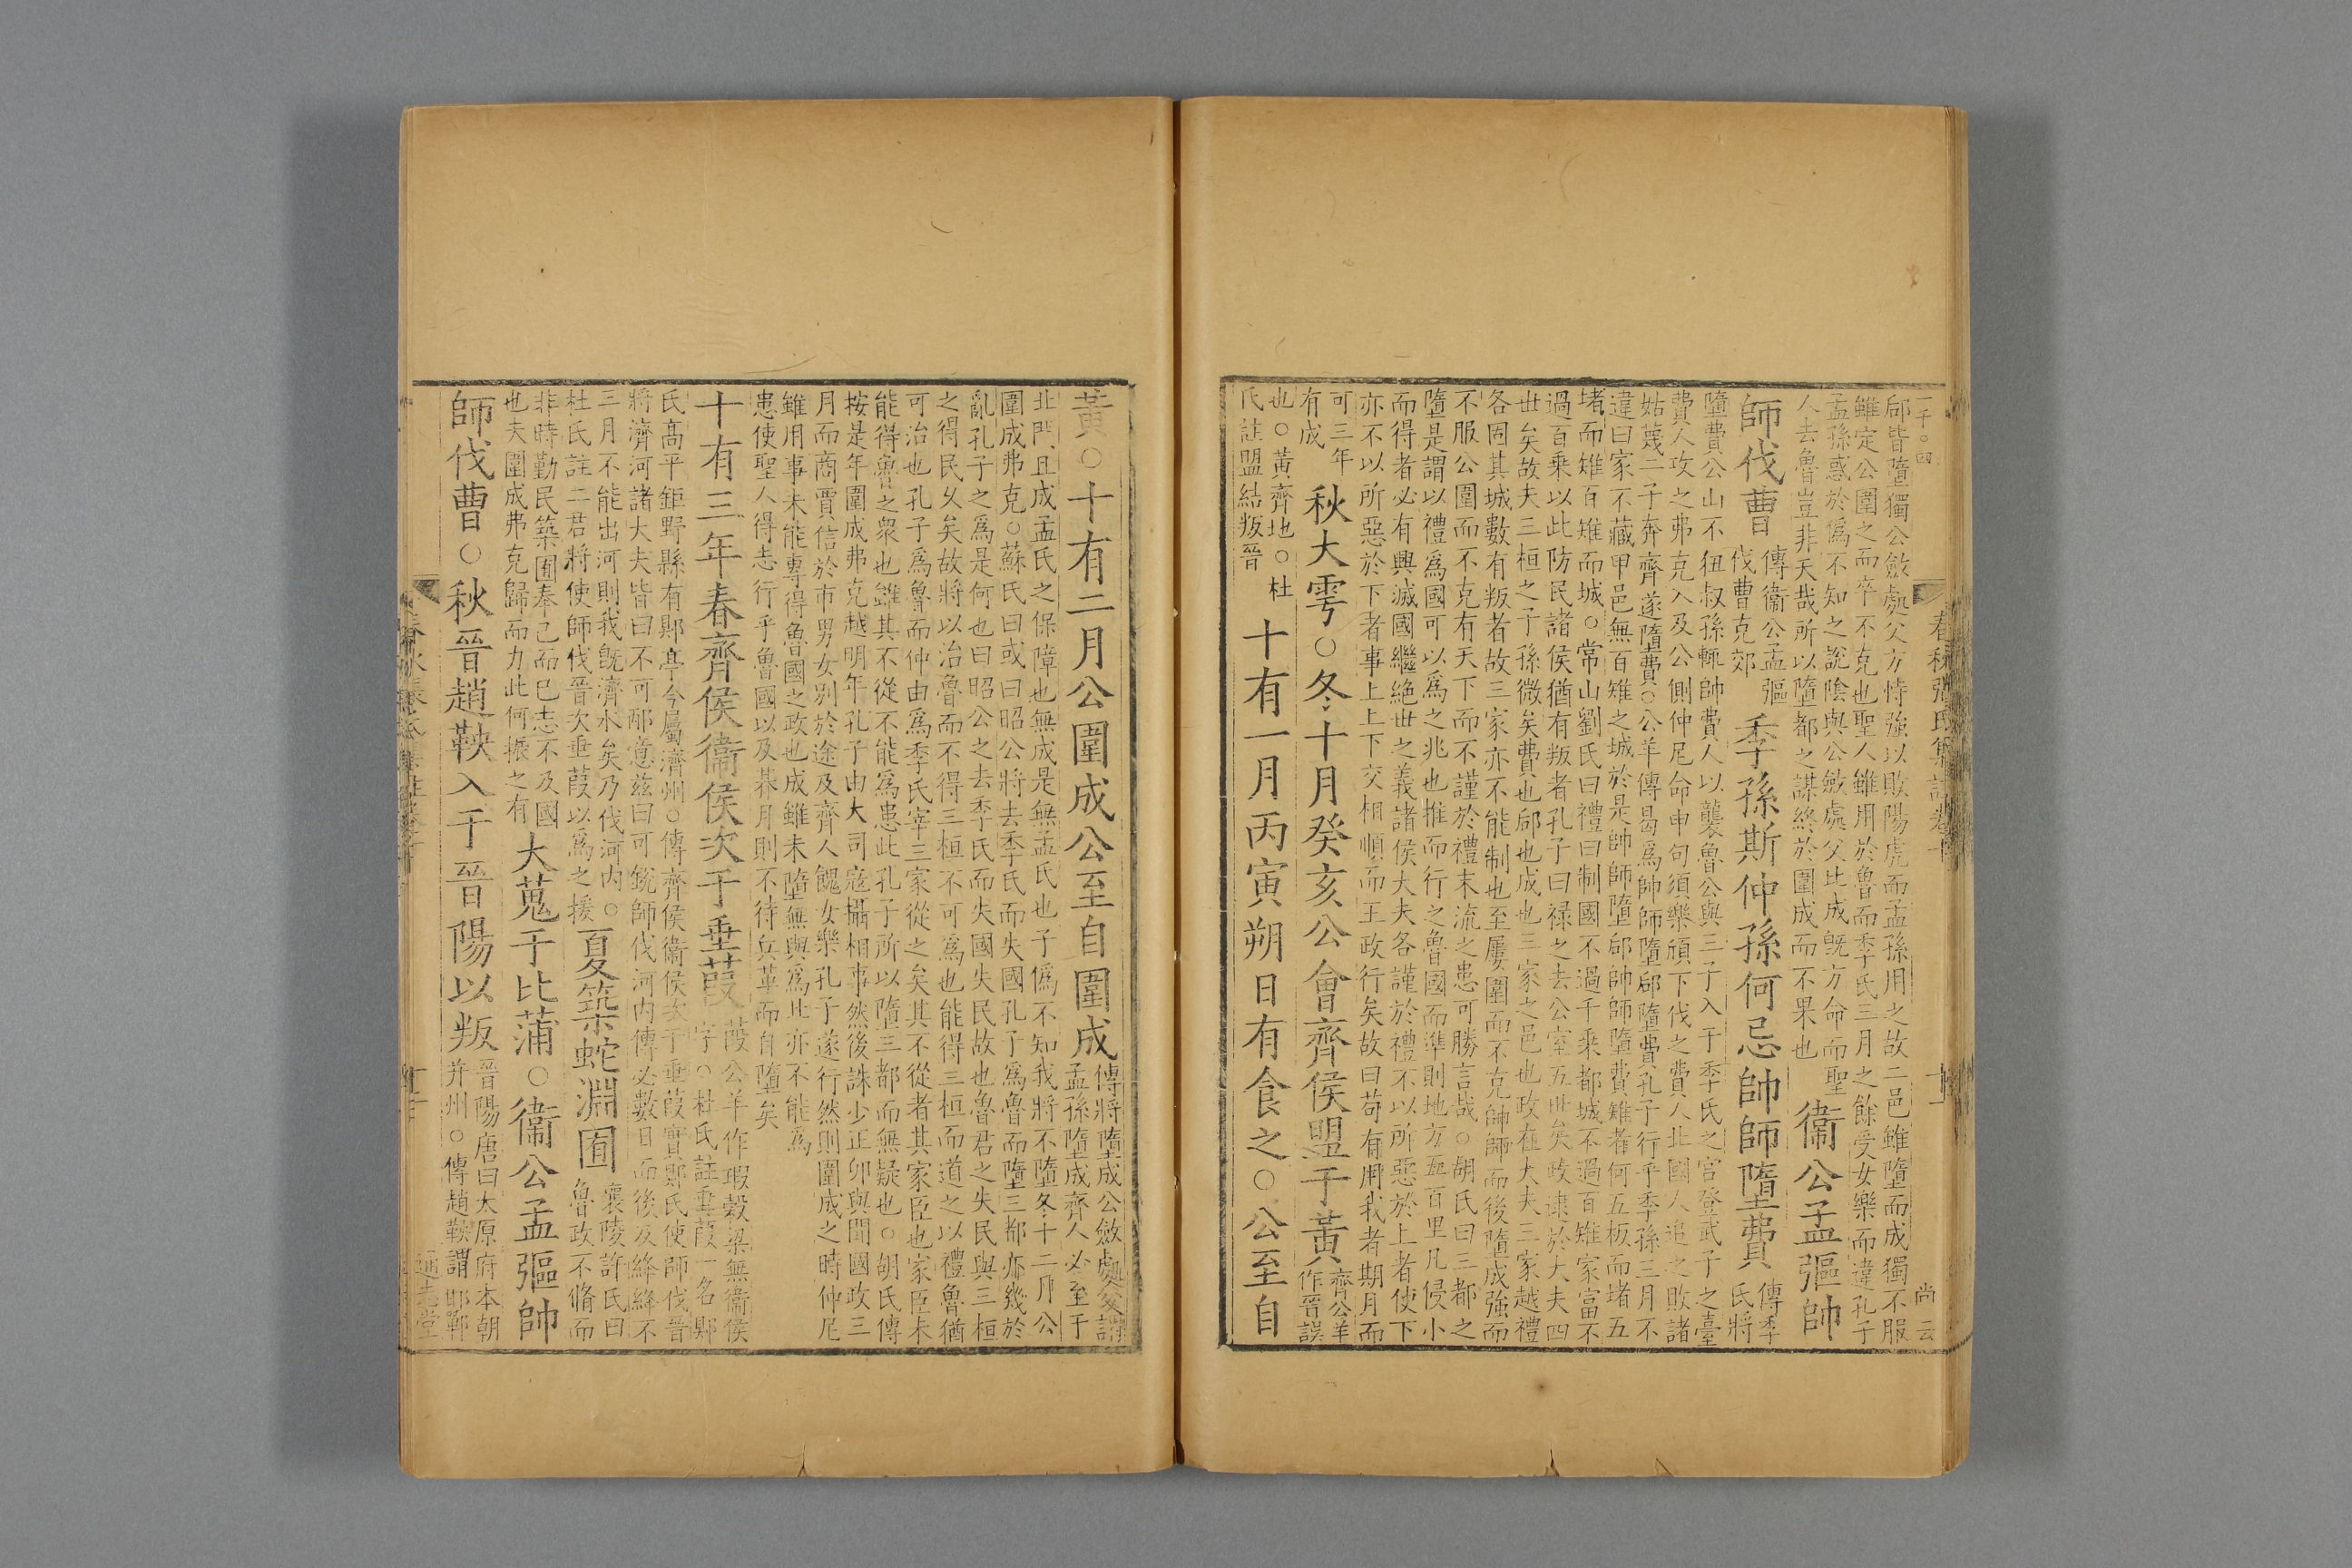 一千〇四
春秋張氏集註卷十
十一
尚云
郈皆墮獨公斂處父方恃強以敗陽虎而孟孫用之故二邑雖墮而成獨不服
雖定公圍之而卒不克也聖人雖用於魯而季氏三月之餘受女樂而違孔子
孟孫惑於僞不知之說陰與公斂處父比成旣方命而聖
人去魯豈非天哉所以墮都之謀終於圍成而不果也
衞公孟彄帥
師伐曹
傳衞公孟彄
伐曹克郊
季孫斯仲孫何忌帥師墮費
傳季
氏將
墮費公山不狃叔孫輒帥費人以襲魯公與三子入于季氏之宮登武子之臺
費人攻之弗克入及公側仲尼命申句須樂頎下伐之費人北國人追之敗諸
姑蔑二子奔齊遂墮費○公羊傳曷爲帥師墮郈墮費孔子行乎季孫三月不
違曰家不藏甲邑無百雉之城於是帥師墮郈帥師墮費雉者何五板而堵五
堵而雉百雉而城○常山劉氏曰禮曰制國不過千乗都城不過百雉家富不
過百乗以此防民諸侯猶有叛者孔子曰禄之去公室五世矣政逮於大夫四
世矣故夫三桓之子孫微矣費也郈也成也三家之邑也政在大夫三家越禮
各固其城數有叛者故三家亦不能制也至屢圍而不克帥師而後墮成強而
不服公圍而不克有天下而不謹於禮末流之患可勝言哉○胡氏曰三都之
墮是謂以禮爲國可以爲之兆也推而行之魯國而準則地方五百里凡侵小
而得者必有興滅國繼絶世之義諸侯大夫各謹於禮不以所惡於上者使下
亦不以所惡於下者事上上下交相順而王政行矣故曰苟有用我者期月而
可三年
有成
秋大雩○冬十月癸亥公會齊侯盟于黃
齊公羊
作晉誤
也○黃齊地○杜
氏註盟結叛晉
十有一月丙寅朔日有食之○公至自
黃○十有二月公圍成公至自圍成
傳將墮成公斂處父謂
孟孫墮成齊人必至于
北門且成孟氏之保障也無成是無孟氏也子僞不知我將不墮冬十二月公
圍成弗克○蘇氏曰或曰昭公將去季氏而失國孔子爲魯而墮三都亦幾於
亂孔子之爲是何也曰昭公之去季氏而失國失民故也魯君之失民與三桓
之得民乆矣故將以治魯而不得三桓不可爲也能得三桓而道之以禮魯猶
可治也孔子爲魯而仲由爲季氏宰三家從之矣其不從者其家臣也家臣未
能得魯之衆也雖其不從不能爲患此孔子所以墮三都而無疑也○胡氏傳
按是年圍成弗克越明年孔子由大司寇攝相事然後誅少正卯與聞國政三
月而商賈信於市男女別於途及齊人饋女樂孔子遂行然則圍成之時仲尼
雖用事未能專得魯國之政也成雖未墮無與爲比亦不能爲
患使聖人得志行乎魯國以及朞月則不待兵革而自墮矣
十有三年春齊侯衞侯次于垂葭
葭公羊作瑕穀梁無衞侯
字○杜氏註垂葭一名郹
氏髙平鉅野縣有郹亭今屬濟州○傳齊侯衞侯次于垂葭實郹氏使師伐晉
將濟河諸大夫皆曰不可邴意兹曰可銳師伐河内傳必數日而後及絳絳不
三月不能出河則我旣濟水矣乃伐河内○
杜氏註二君將使師伐晉次垂葭以爲之援
夏築蛇淵囿
襄陵許氏曰
魯政不脩而
非時勤民築囿奉己而已志不及國
也夫圍成弗克歸而力此何振之有
大蒐于比蒲○衞公孟彄帥
師伐曹○秋晉趙鞅入于晉陽以叛
晉陽唐曰太原府本朝
并州○傳趙鞅謂邯鄲
通志堂